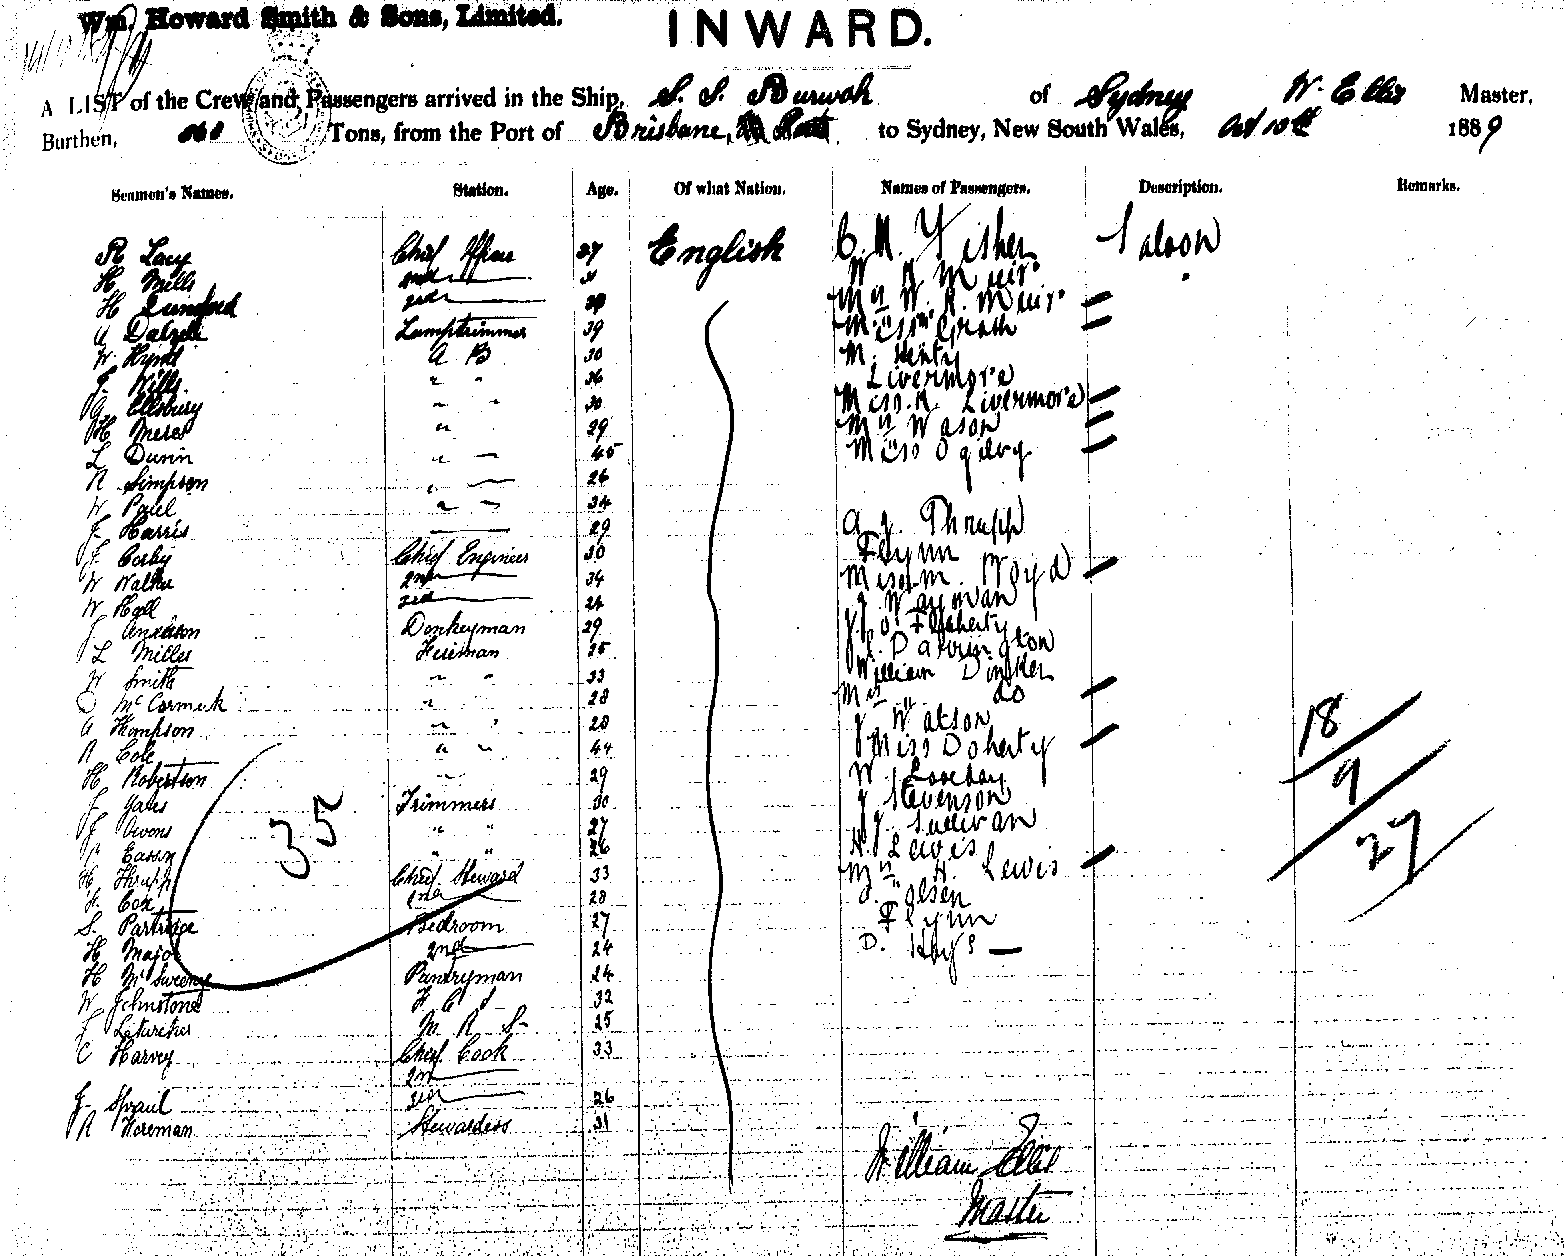 Wm. Howard Smith & Sons, Limited.
INWARD.
A LIST of the Crew and Passengers arrived in the Ship, S. S. Burwah of Sydney W. Ellis Master,
Burthen, Tons, from the Port of Brisbane, to Sydney, New South Wales, Oct 10th 1889
Seamen's Names. Station. Age. Of what Nation. Names of Passengers. Description. Remarks.
R Lacy Chief Officer 37 English C. M. Fisher Saloon
H Mills 2nd 31 W R Muir
H 3rd Mrs W. R. Muir
A Dalzell Lamptrimmer 39 Miss McGrath
W A B 30 M. Henty
J. Wills " " 36 Livermore
G Ellsbury " " 30 Miss R. Livermore
H " 29 Mrs Wason
L Dunn " 45 Miss Ogilvy
R Simpson " 26
W Paul " 34
J. Harris 29 A. J. Thrupp
J. Corby Chief Engineer 30 Flynn
W Walker 2nd 34 Miss M. Boyd
W Hall 3rd 24 J Wayman
J Anderson Donkeyman 29 J. O'Flaherty
L Miller Fireman 25 Darrington
W Smith " " 33 William Dinsder
D McCormick " 28 Mrs do
A Thompson " " 28 J Watson
R Cole " " 44 Miss Doherty
H Robertson " 29 W Loveday
J Yates Trimmers 30 J Stevenson
J Owens " " 27 J Sullivan
Eassin " " 26 H Lewis
H Thrupp Chief Steward 33 Mrs H. Lewis
J. Cox 2nd 28 J. Olsen
S. Partridge Bedroom 27 Flynn
H Major 2nd 24 D. —
H McSweeny Pantryman 24
W Johnstone F C S 32
J M R S 25
C Harvey Chief Cook 33
2nd
J Spraul 3rd 26
R Horeman Stewardess 31
35
18
9
27
William Ellis
Master